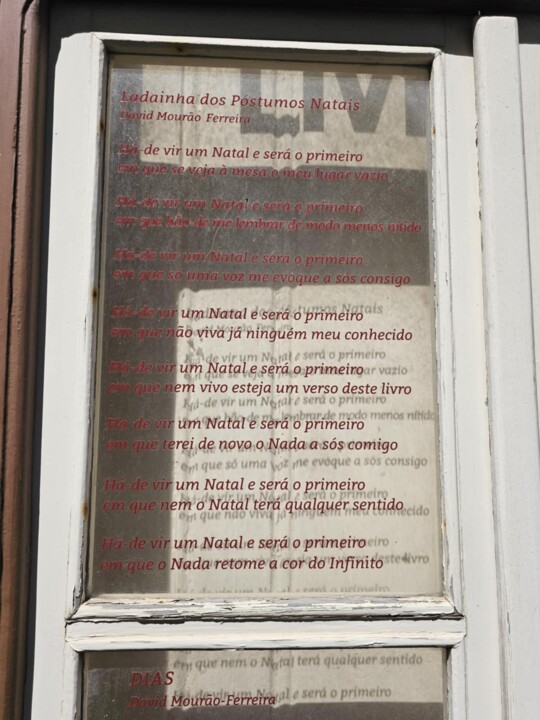 LIV
Ladainha dos Póstumos Natais
David Mourão Ferreira
Há-de vir um Natal e será o primeiro
em que se veja à mesa o meu lugar vazio
Há-de vir um Natal e será o primeiro
em que hão-de me lembrar de modo menos nítido
Há-de vir um Natal e será o primeiro
em que só uma voz me evoque a sós consigo
Há-de vir um Natal e será o primeiro
em que não viva já ninguém meu conhecido
Há-de vir um Natal e será o primeiro
em que nem vivo esteja um verso deste livro
Há-de vir um Natal e será o primeiro
em que terei de novo o Nada a sós comigo
Há-de vir um Natal e será o primeiro
em que nem o Natal terá qualquer sentido
Há-de vir um Natal e será o primeiro
em que o Nada retome a cor do Infinito
DIAS
David Mourão-Ferreira